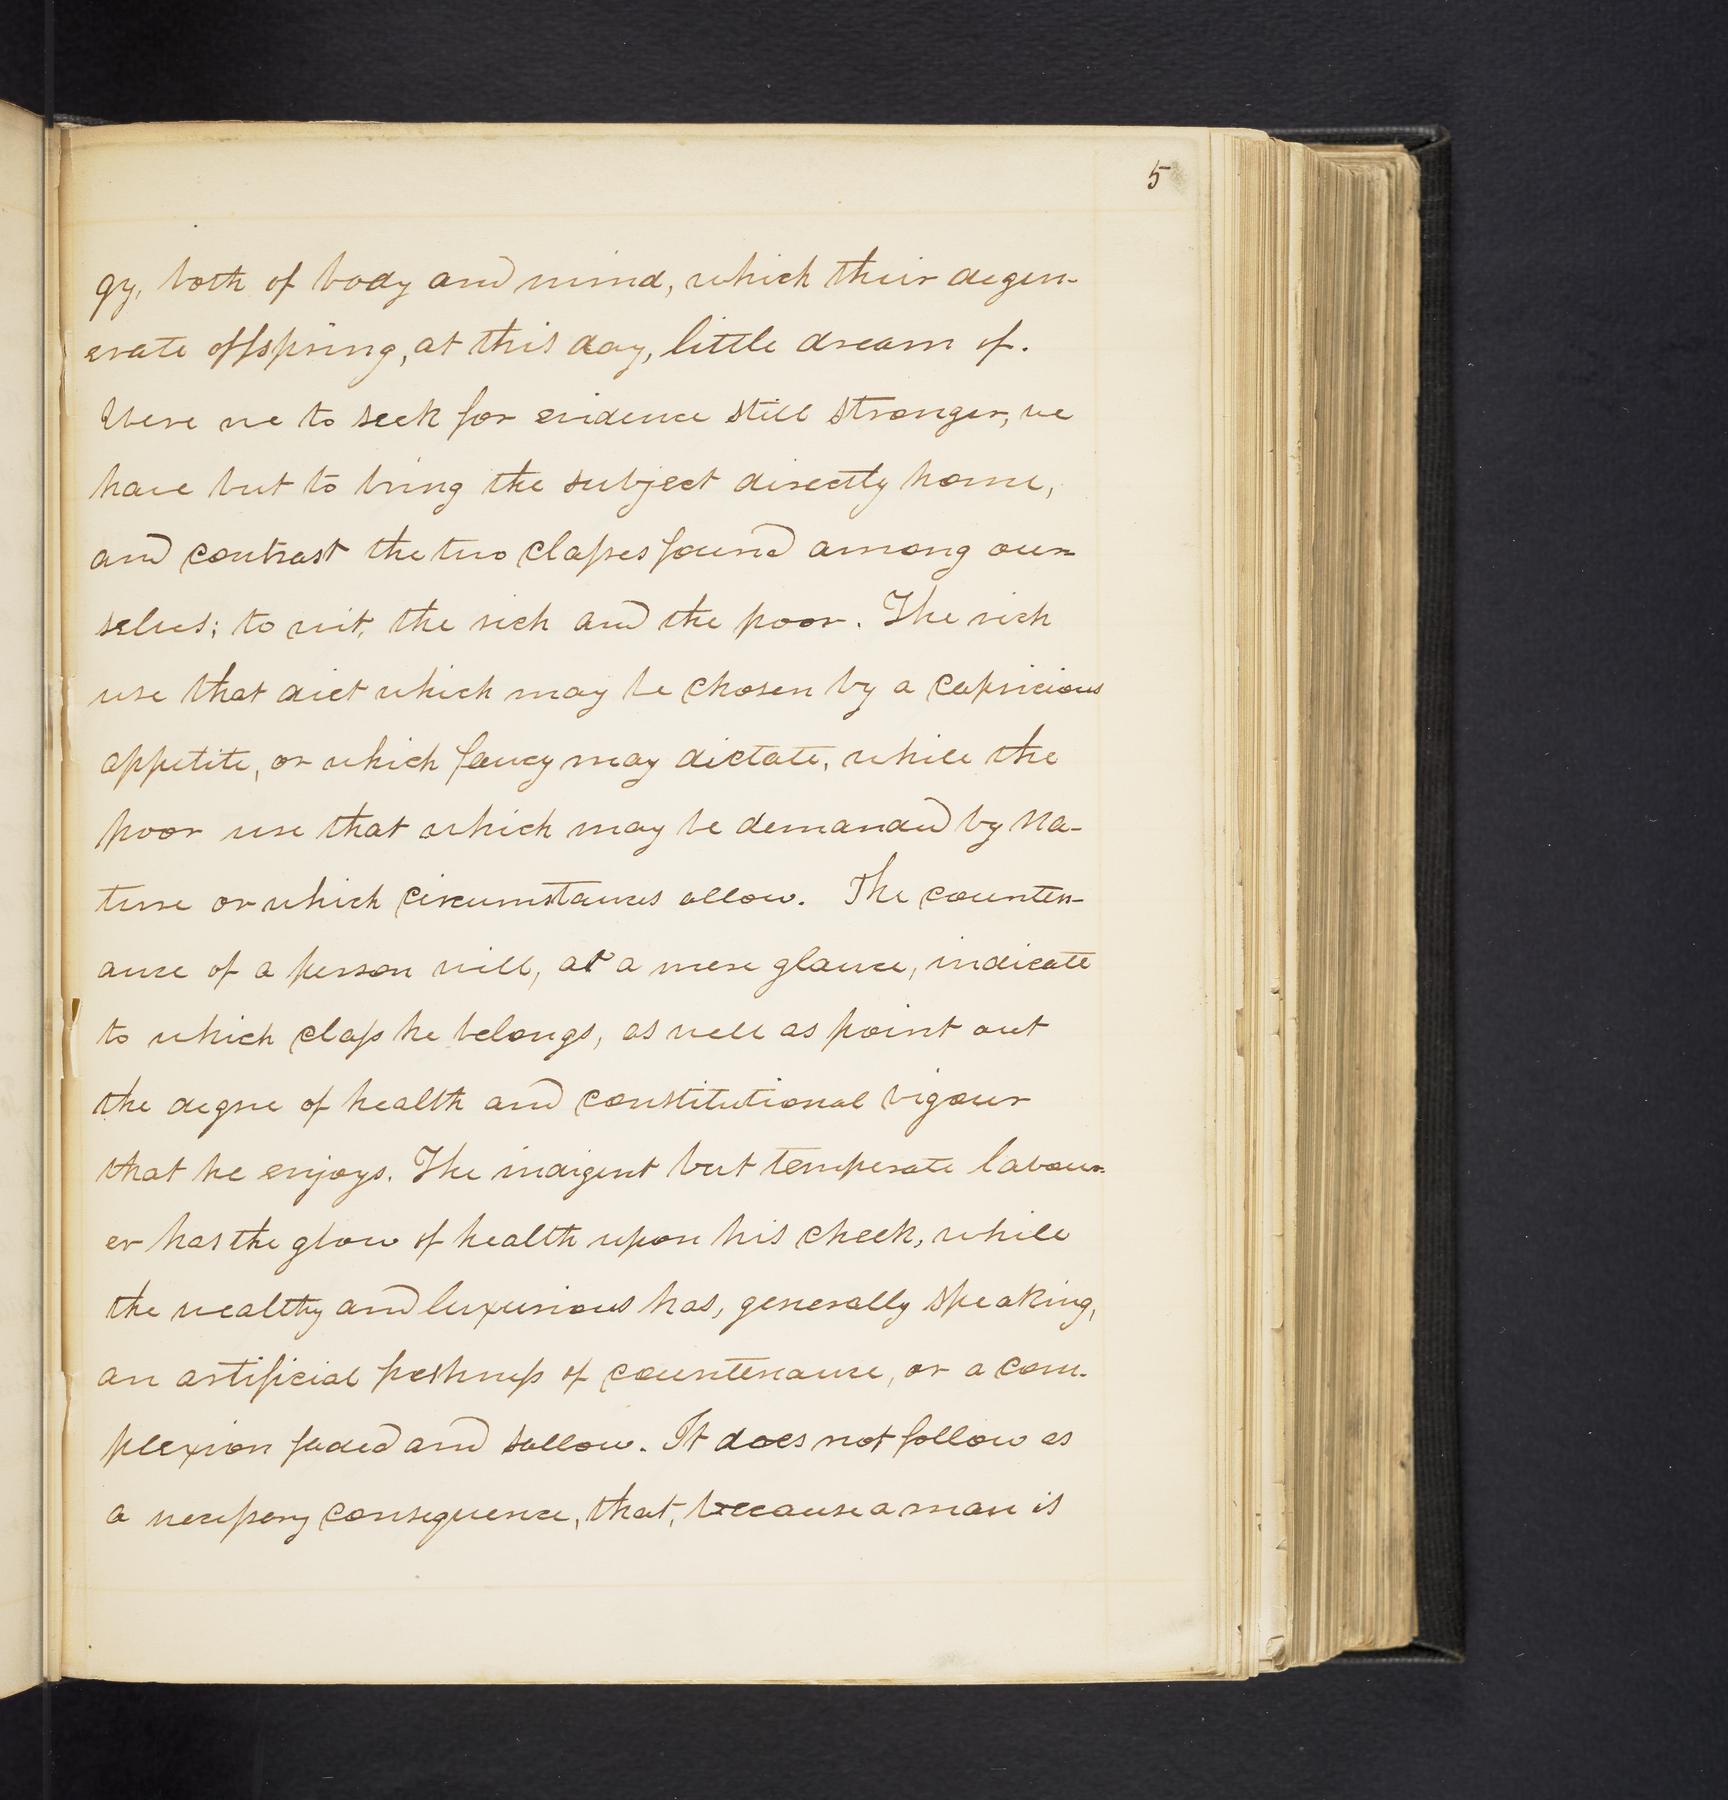 5
gy, both of body and mind, which their degen-
erate offspring, at this day, little dream of.
Were we to seek for evidence still stronger, we
have but to bring the subject directly home,
and contrast the two claſses found among our-
selves; to wit, the rich and the poor. The rich
use that diet which may be chosen by a capricious
appetite, or which fancy may dictate, while the
poor use that which may be demanded by na-
ture or which circumstances allow. The counten-
ance of a person will, at a mere glance, indicate
to which claſs he belongs, as well as point out
the degree of health and constitutional vigour
that he enjoys. The indigent but temperate labour-
er has the glow of health upon his cheek, while
the wealthy and luxurious has, generally speaking,
an artificial freshneſs of countenance, or a com-
plexion faded and sallow. It does not follow as
a neceſsary consequence, that, because a man is